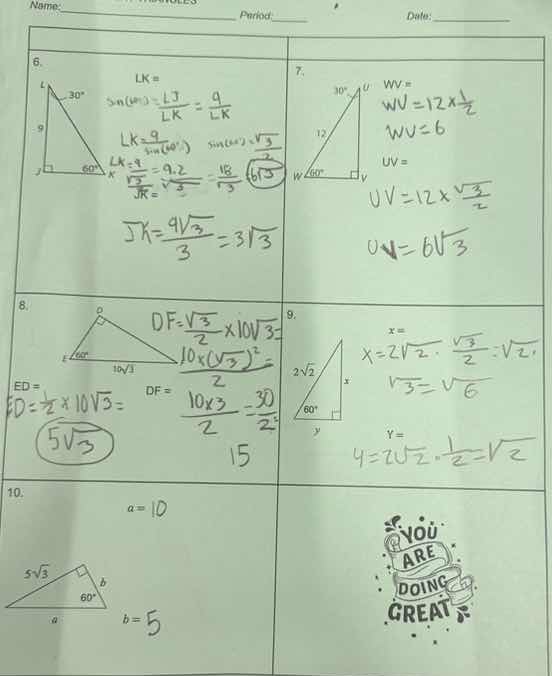 Name:
Period:
Date:
6.
LK =
L
30°
9
J
60°
K
sin(60°) = LJ/LK = 9/LK
LK = 9/sin(60°) sin(60°) = √3/2
LK = 9/(√3/2) = 9.2/√3 = 18/√3 = 6√3
JK =
JK = 9√3/3 = 3√3
7.
WV =
30°
U
12
W
60°
V
WV = 12 × 1/2
WV = 6
UV =
UV = 12 × √3/2
UV = 6√3
8.
D
E
60°
10√3
DF = √3/2 × 10√3 =
10×(√3)²/2 =
ED =
DF =
ED = 1/2 × 10√3 =
10×3/2 = 30/2 =
5√3
15
9.
x =
2√2
x
60°
y
x = 2√2 · √3/2 = √2 ·
√3 = √6
Y =
y = 2√2 · 1/2 = √2
10.
a = 10
5√3
b
60°
a
b = 5
YOU
ARE
DOING
GREAT